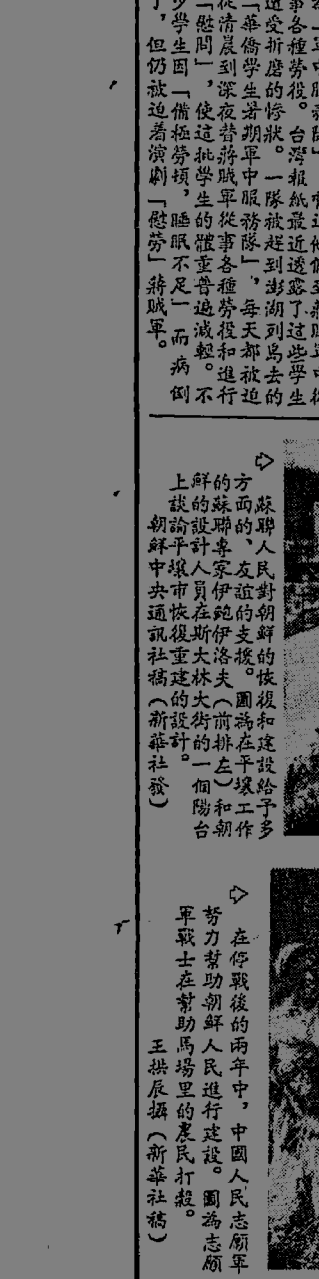 事各種勞役。台灣報紙最近透露了过些學生
遭受折磨的惨狀。一隊被趕到澎湖列島去的
「華僑學生暑期軍中服務隊」，每天都被迫
從清晨到深夜替蔣賊軍從事各種勞役和進行
「慰問」，使這批學生的體重普遍減輕。不
少學生因「備極勞頓，睡眠不足」而病倒
了，但仍被迫着演劇「慰勞」蔣賊軍。
⇨ 蘇聯人民對朝鮮的恢復和建設給予多
方面的、友誼的支援。圖爲在平壤工作
的蘇聯專家伊鲍伊洛夫（前排左）和朝
鮮的設計人員在斯大林大街的一個陽台
上談論平壤市恢復重建的設計。
朝鮮中央通訊社稿（新華社發）
⇨ 在停戰後的兩年中，中國人民志願軍
努力幫助朝鮮人民進行建設。圖爲志願
軍戰士在幫助馬場里的農民打穀。
王拱辰攝（新華社稿）